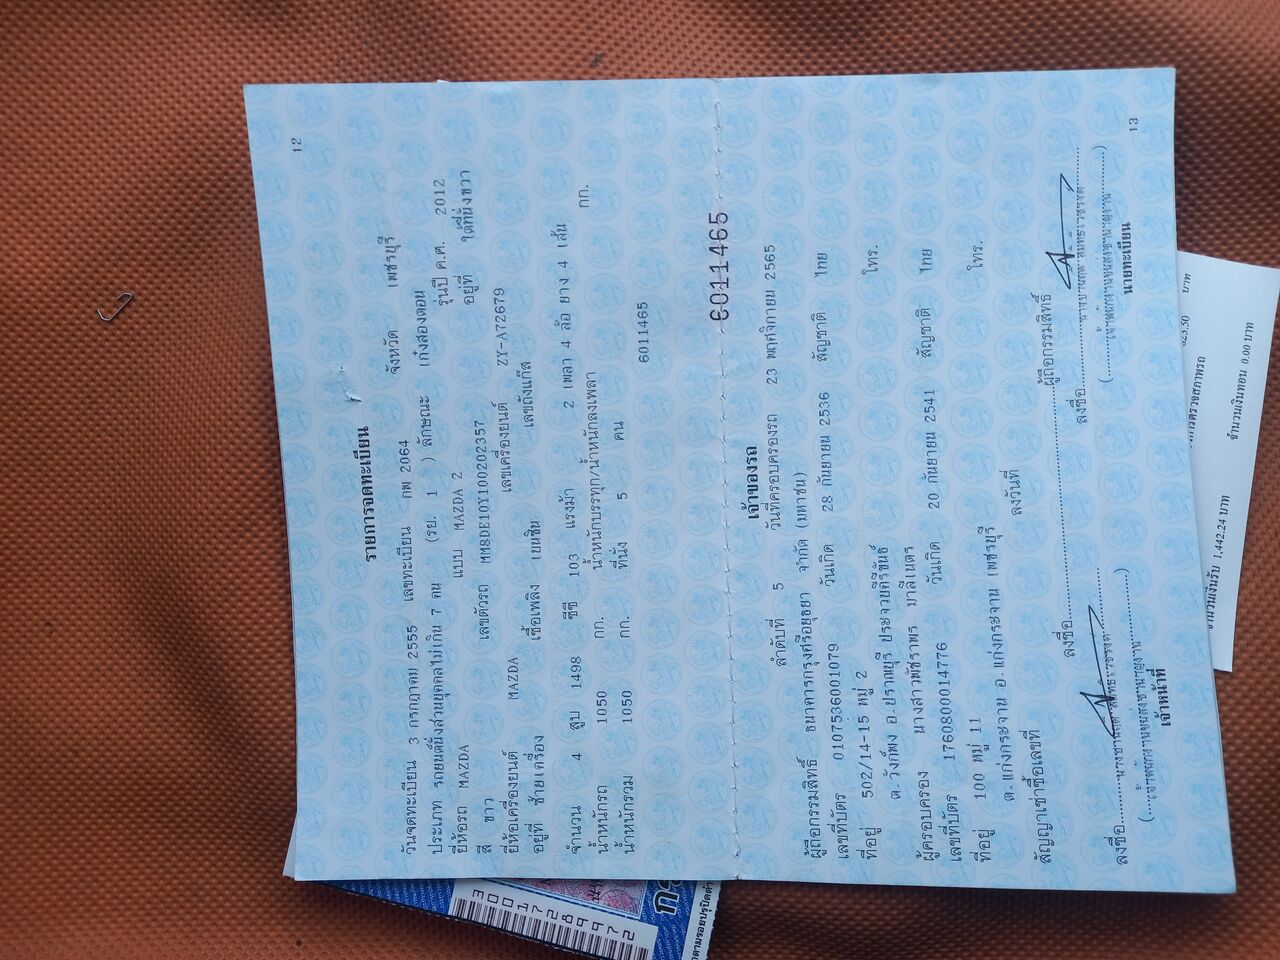 12
รายการจดทะเบียน
วันจดทะเบียน 3 กรกฎาคม 2555 เลขทะเบียน กพ 2064 จังหวัด เพชรบุรี
ประเภท รถยนต์นั่งส่วนบุคคลไม่เกิน 7 คน (รย. 1 ) ลักษณะ เก๋งสองตอน
ยี่ห้อรถ MAZDA แบบ MAZDA 2 รุ่นปี ค.ศ. 2012
สี ขาว เลขตัวรถ MM8DE10Y100202357 อยู่ที่ ใต้ที่นั่งขวา
ยี่ห้อเครื่องยนต์ MAZDA เลขเครื่องยนต์ ZY-A72679
อยู่ที่ ซ้ายเครื่อง เชื้อเพลิง เบนซิน เลขถังแก๊ส
จำนวน 4 สูบ 1498 ซีซี 103 แรงม้า 2 เพลา 4 ล้อ ยาง 4 เส้น
น้ำหนักรถ 1050 กก. น้ำหนักบรรทุก/น้ำหนักลงเพลา กก.
น้ำหนักรวม 1050 กก. ที่นั่ง 5 คน
6011465
6011465
เจ้าของรถ
ลำดับที่ 5 วันที่ครอบครองรถ 23 พฤศจิกายน 2565
ผู้ถือกรรมสิทธิ์ ธนาคารกรุงศรีอยุธยา จำกัด (มหาชน)
เลขที่บัตร 0107536001079 วันเกิด 28 กันยายน 2536 สัญชาติ ไทย
ที่อยู่ 502/14-15 หมู่ 2 โทร.
ต.วังก์พง อ.ปราณบุรี ประจวบคีรีขันธ์
ผู้ครอบครอง นางสาวพัชราพร มาลีเนตร
เลขที่บัตร 1760800014776 วันเกิด 20 กันยายน 2541 สัญชาติ ไทย
ที่อยู่ 100 หมู่ 11 โทร.
ต.แก่งกระจาน อ.แก่งกระจาน เพชรบุรี
สัญญาเช่าซื้อเลขที่ ลงวันที่
ลงชื่อ ผู้ถือกรรมสิทธิ์
ลงชื่อ ลงชื่อ
(เจ้าพนักงานขนส่งชำนาญงาน) (เจ้าพนักงานขนส่งชำนาญงาน)
เจ้าหน้าที่ นายทะเบียน
13
บาท
ตรวจสภาพรถ
จำนวนเงินรับ 1,442.24 บาท จำนวนเงินทอน 0.00 บาท
30017289972